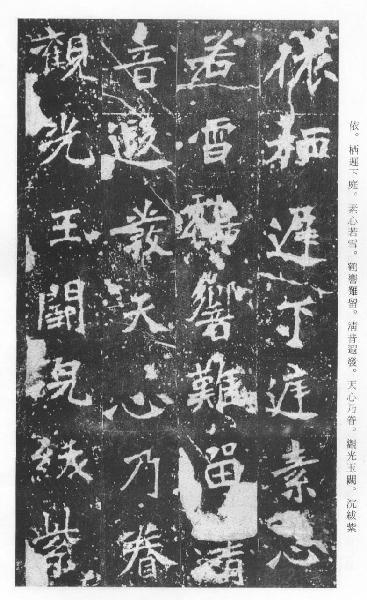 依。栖遲下庭。素心若雪。鶴響難留。清音遐發。天心乃眷。觀光玉闕。紱紫
依栖遲下庭素心
若雪鶴響難留清
音遐發天心乃眷
觀光王闕紱紫